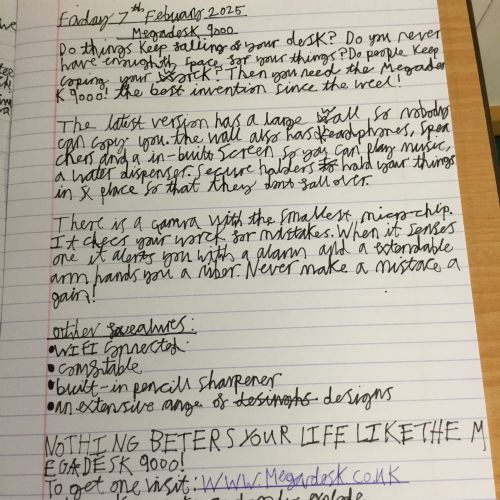 Friday 7th Febuary 2025
Megadesk 9000
Do things keep falling of your desk? Do you never
have enoughth space for your things? Do people keep
coping your work? Then you need the Megades
K 9000! the best invention since the weel!
The latest version has a large wall, so nobody
can copy you. the wall also has headphones, spea
chers and a in-built screen so you can play music,
a water dispenser. Secure holders to hold your things
in place so that they dont fall over.
There is a camra with the smallest micro-chip.
It checs your work for mistakes. When it senses
one it alerts you with a alarm and a extendable
arm hands you a ruber. Never make a mistace a
gain!
other features:
•WIFI connected
•comftable
•built-in pencill sharpener
•an extensive range of desinghs designs
NOTHING BETERS YOUR LIFE LIKE THE M
EGADESK 9000!
To get one visit: WWW.Megadesk.co.uk
explode